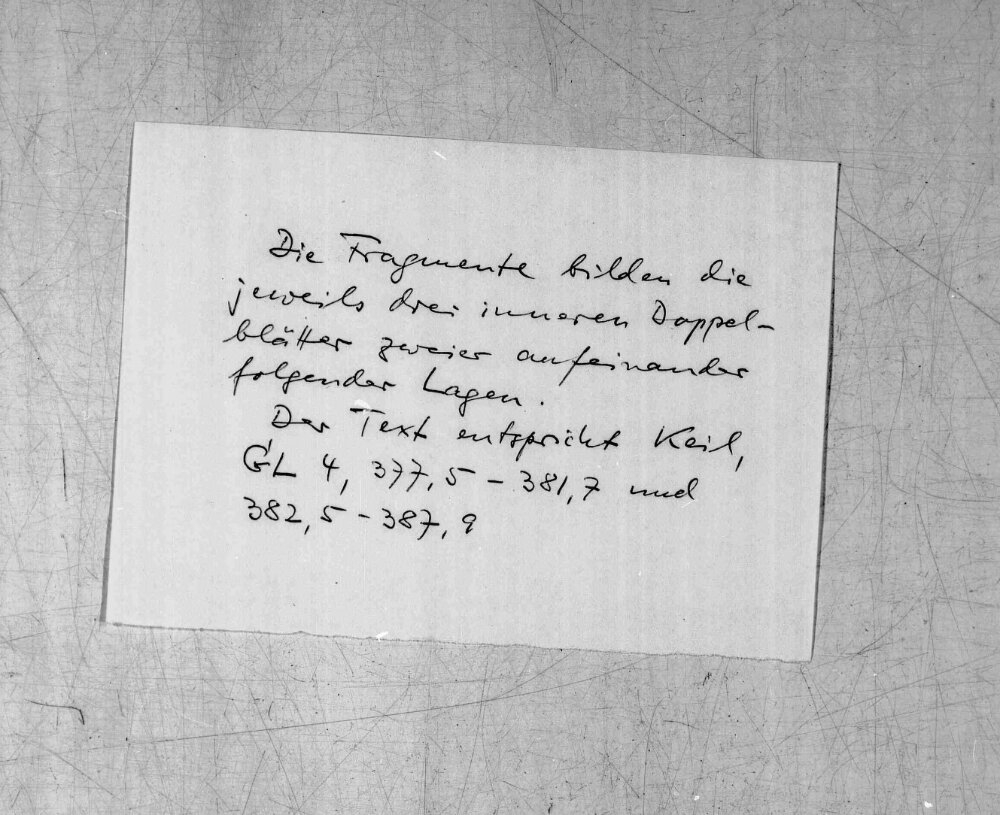 Die Fragmente bilden die
jeweils drei inneren Doppel-
blätter zweier aufeinander
folgender Lagen.
Der Text entspricht Keil,
GL 4, 377,5 - 381,7 und
382,5 - 387,9